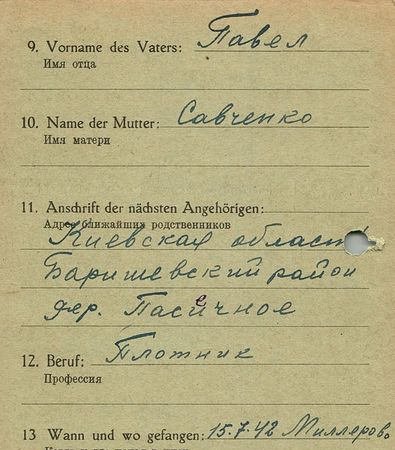 9. Vorname des Vaters: Павел
Имя отца
10. Name der Mutter: Савченко
Имя матери
11. Anschrift der nächsten Angehörigen:
Адрес ближайших родственников
Киевская област
Баришевский район
дер. Пасечное
12. Beruf: Плотник
Профессия
13 Wann und wo gefangen: 15.7.42 Миллерово